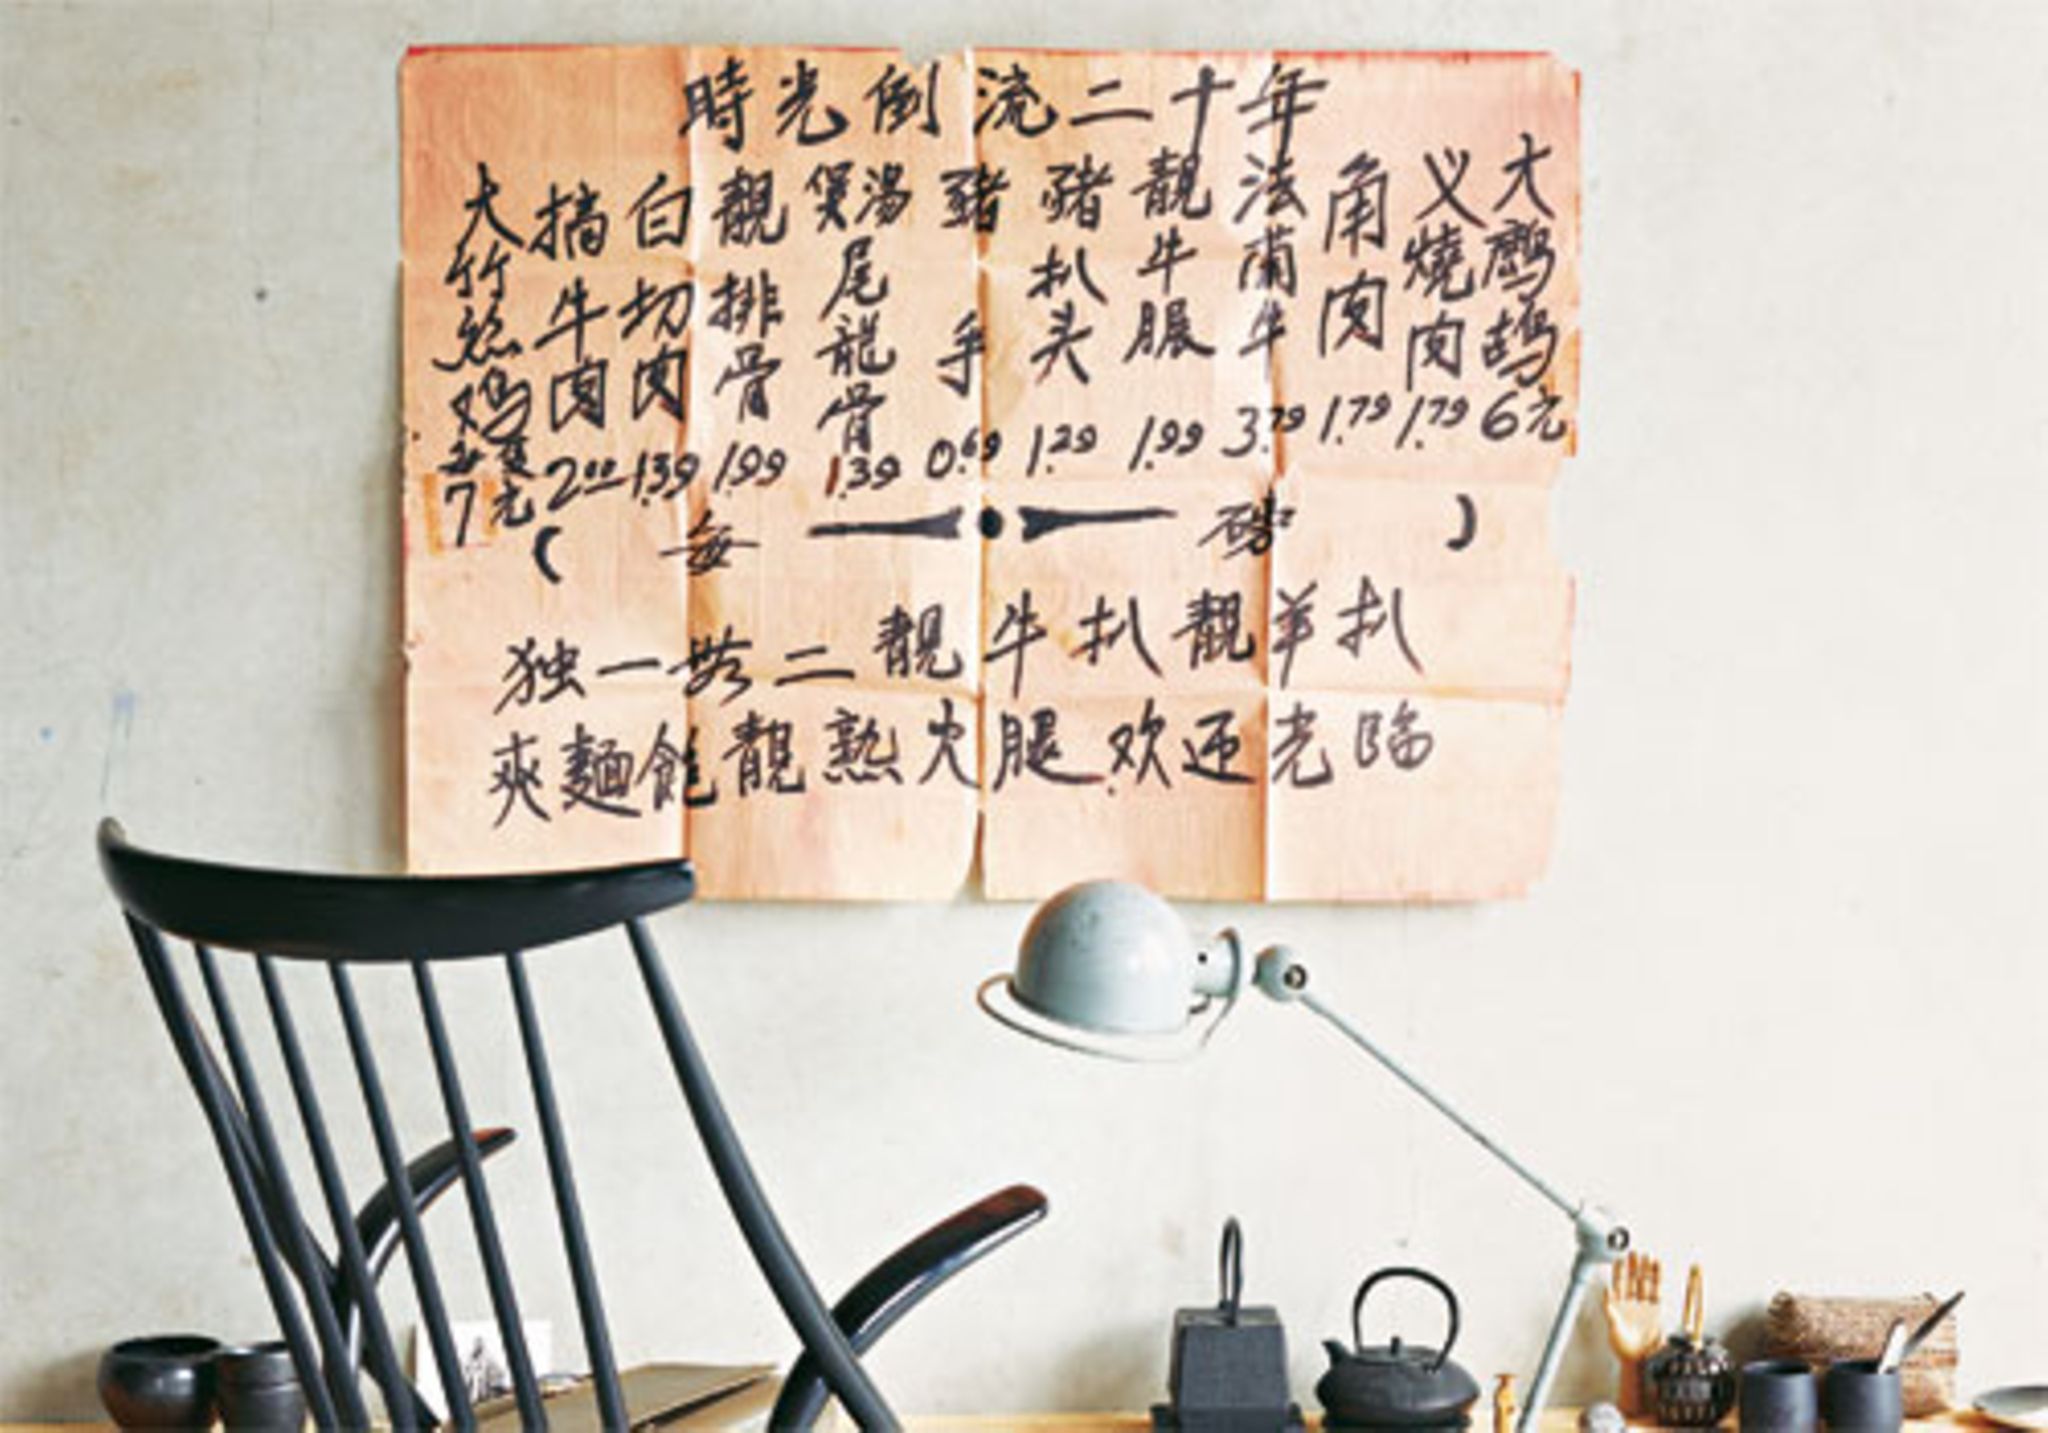 時光倒流二十年
大鹧鸪6元
义燒肉1.79
角肉1.79
法蘭牛3.79
靚牛腒1.99
豬扒头1.29
豬手0.69
煲湯尾龍骨1.39
靚排骨1.99
白切肉1.39
牛肉2.00
大竹絲鸡每隻7元
(每 磅)
独一 二靚牛扒靚羊扒
爽麵飽靚熟火腿欢迎光临